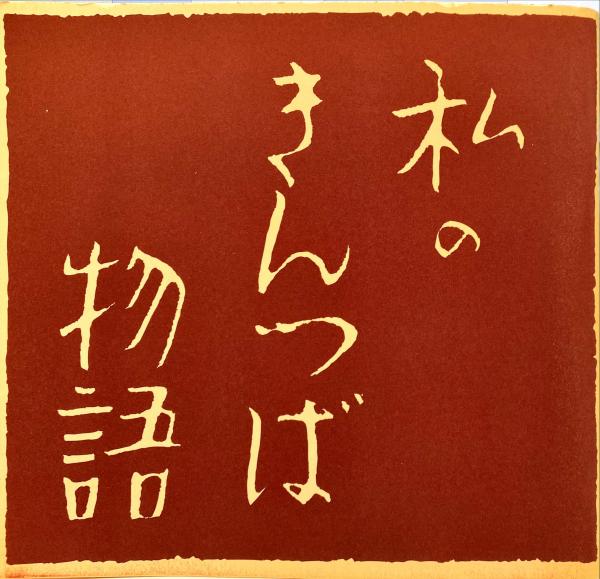 私の
きんつば
物語